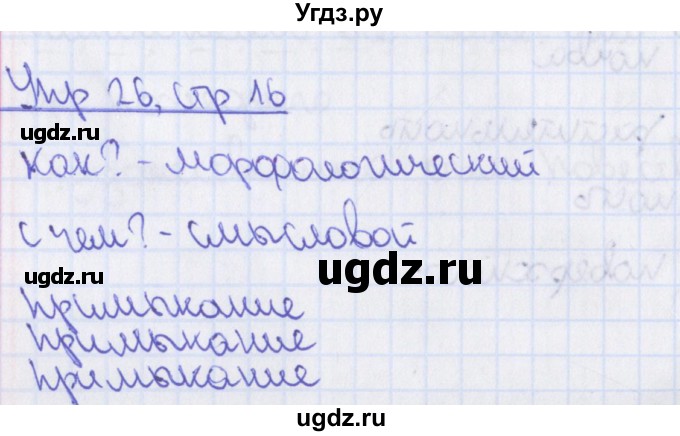 Угдз.ру
Упр 26, стр 16
ugdz.ru
ugdz.ru
Как? - морфологический
с чем? - смысловой
ugdz.ru
ugdz.ru
ugdz.ru
примыкание
примыкание
примыкание
ugdz.ru